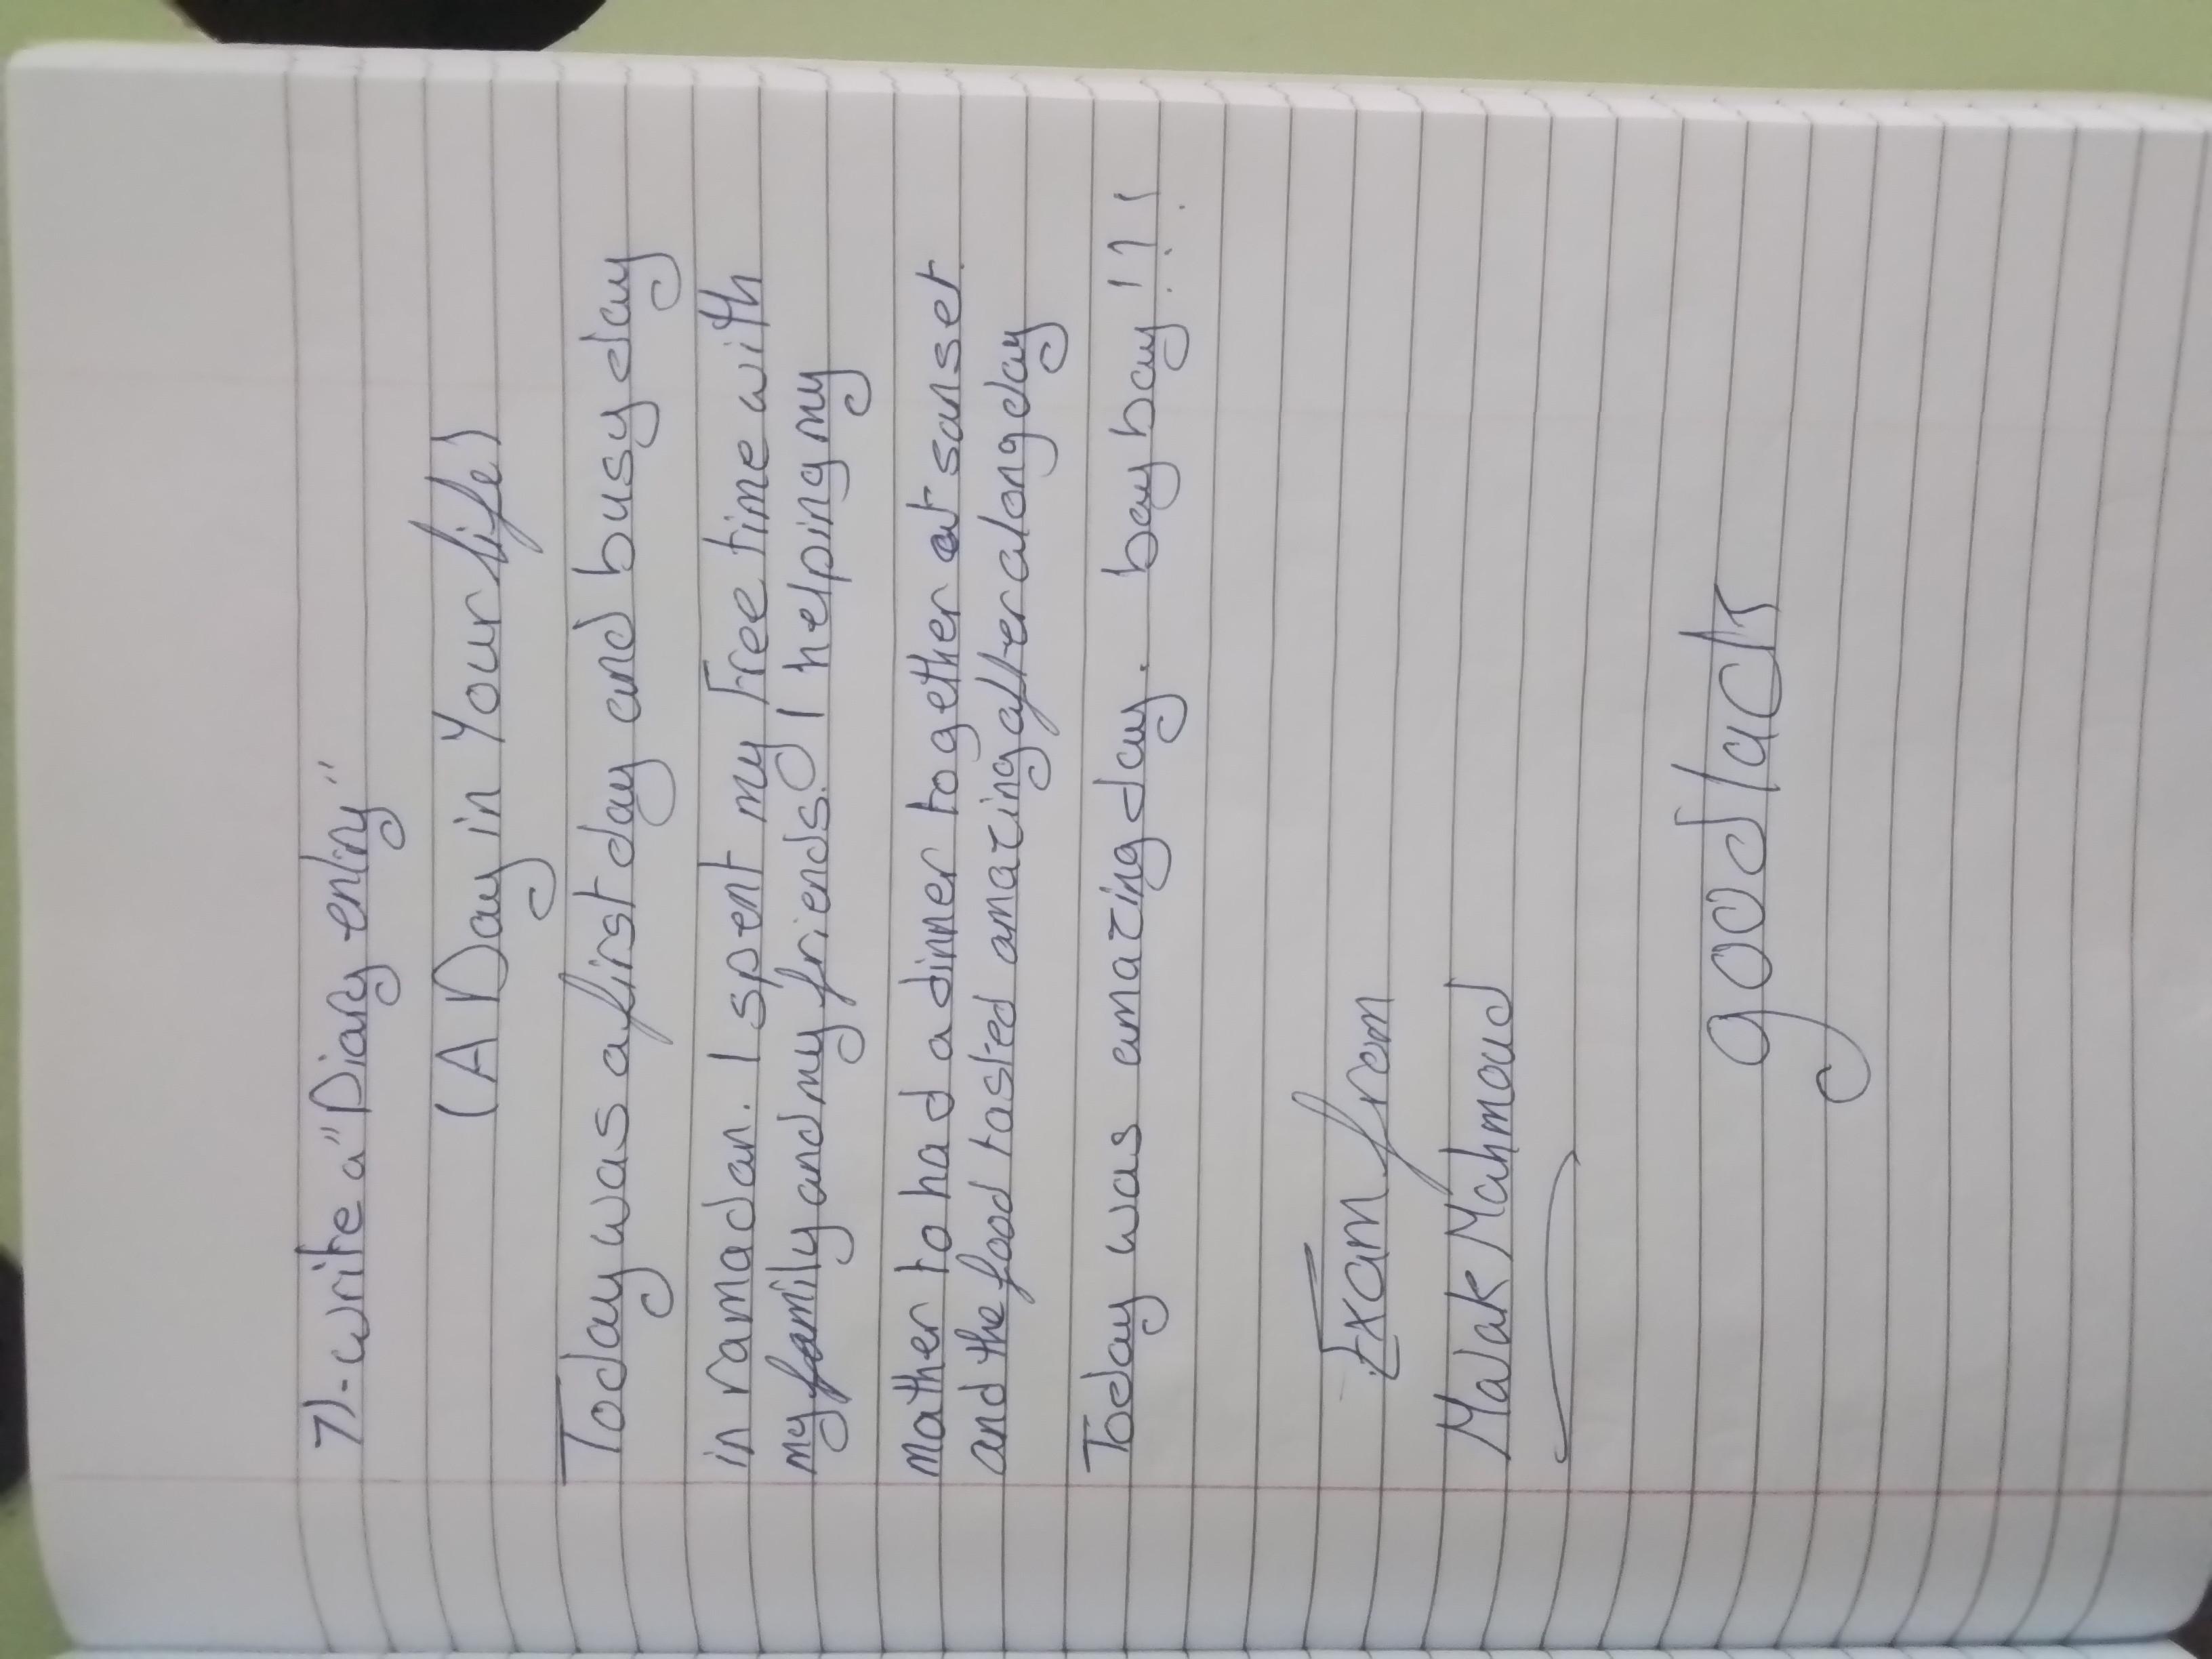 7)-write a "Diary entry"
(A Day in Your life)
Today was a first day and busy day
in ramadan. I spent my Free time with
my family and my friends. I helping my
mather to had a dinner together at sanset.
and the food tasted amazing after a long day
Today was emazing day. bay bay!!!
Exam from
Malak Mahmoud
good lack